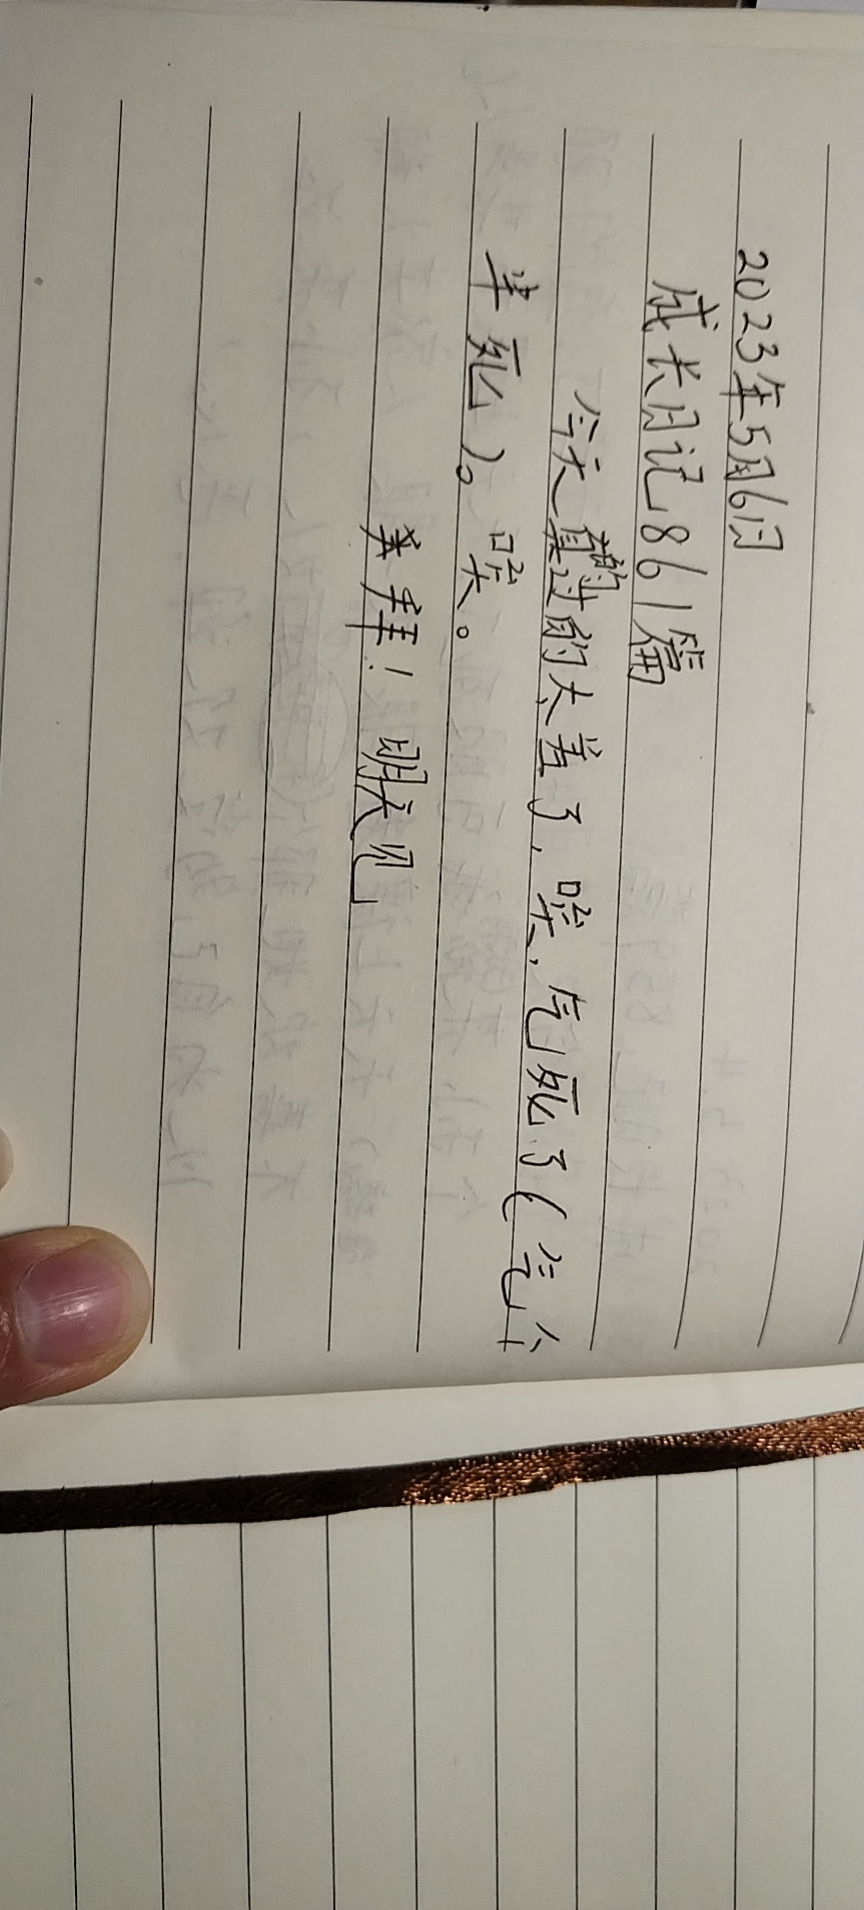 2023年5月6日
成长日记861篇
今天真的过的太差了,唉,气死了(气个
半死)。唉。
拜拜!明天见